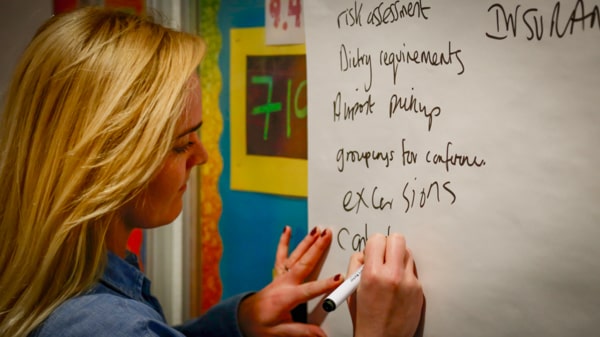 9.4
710
risk assessment
Dietry requirements
Airport pickup
groupings for conference.
excursions
INSURAN